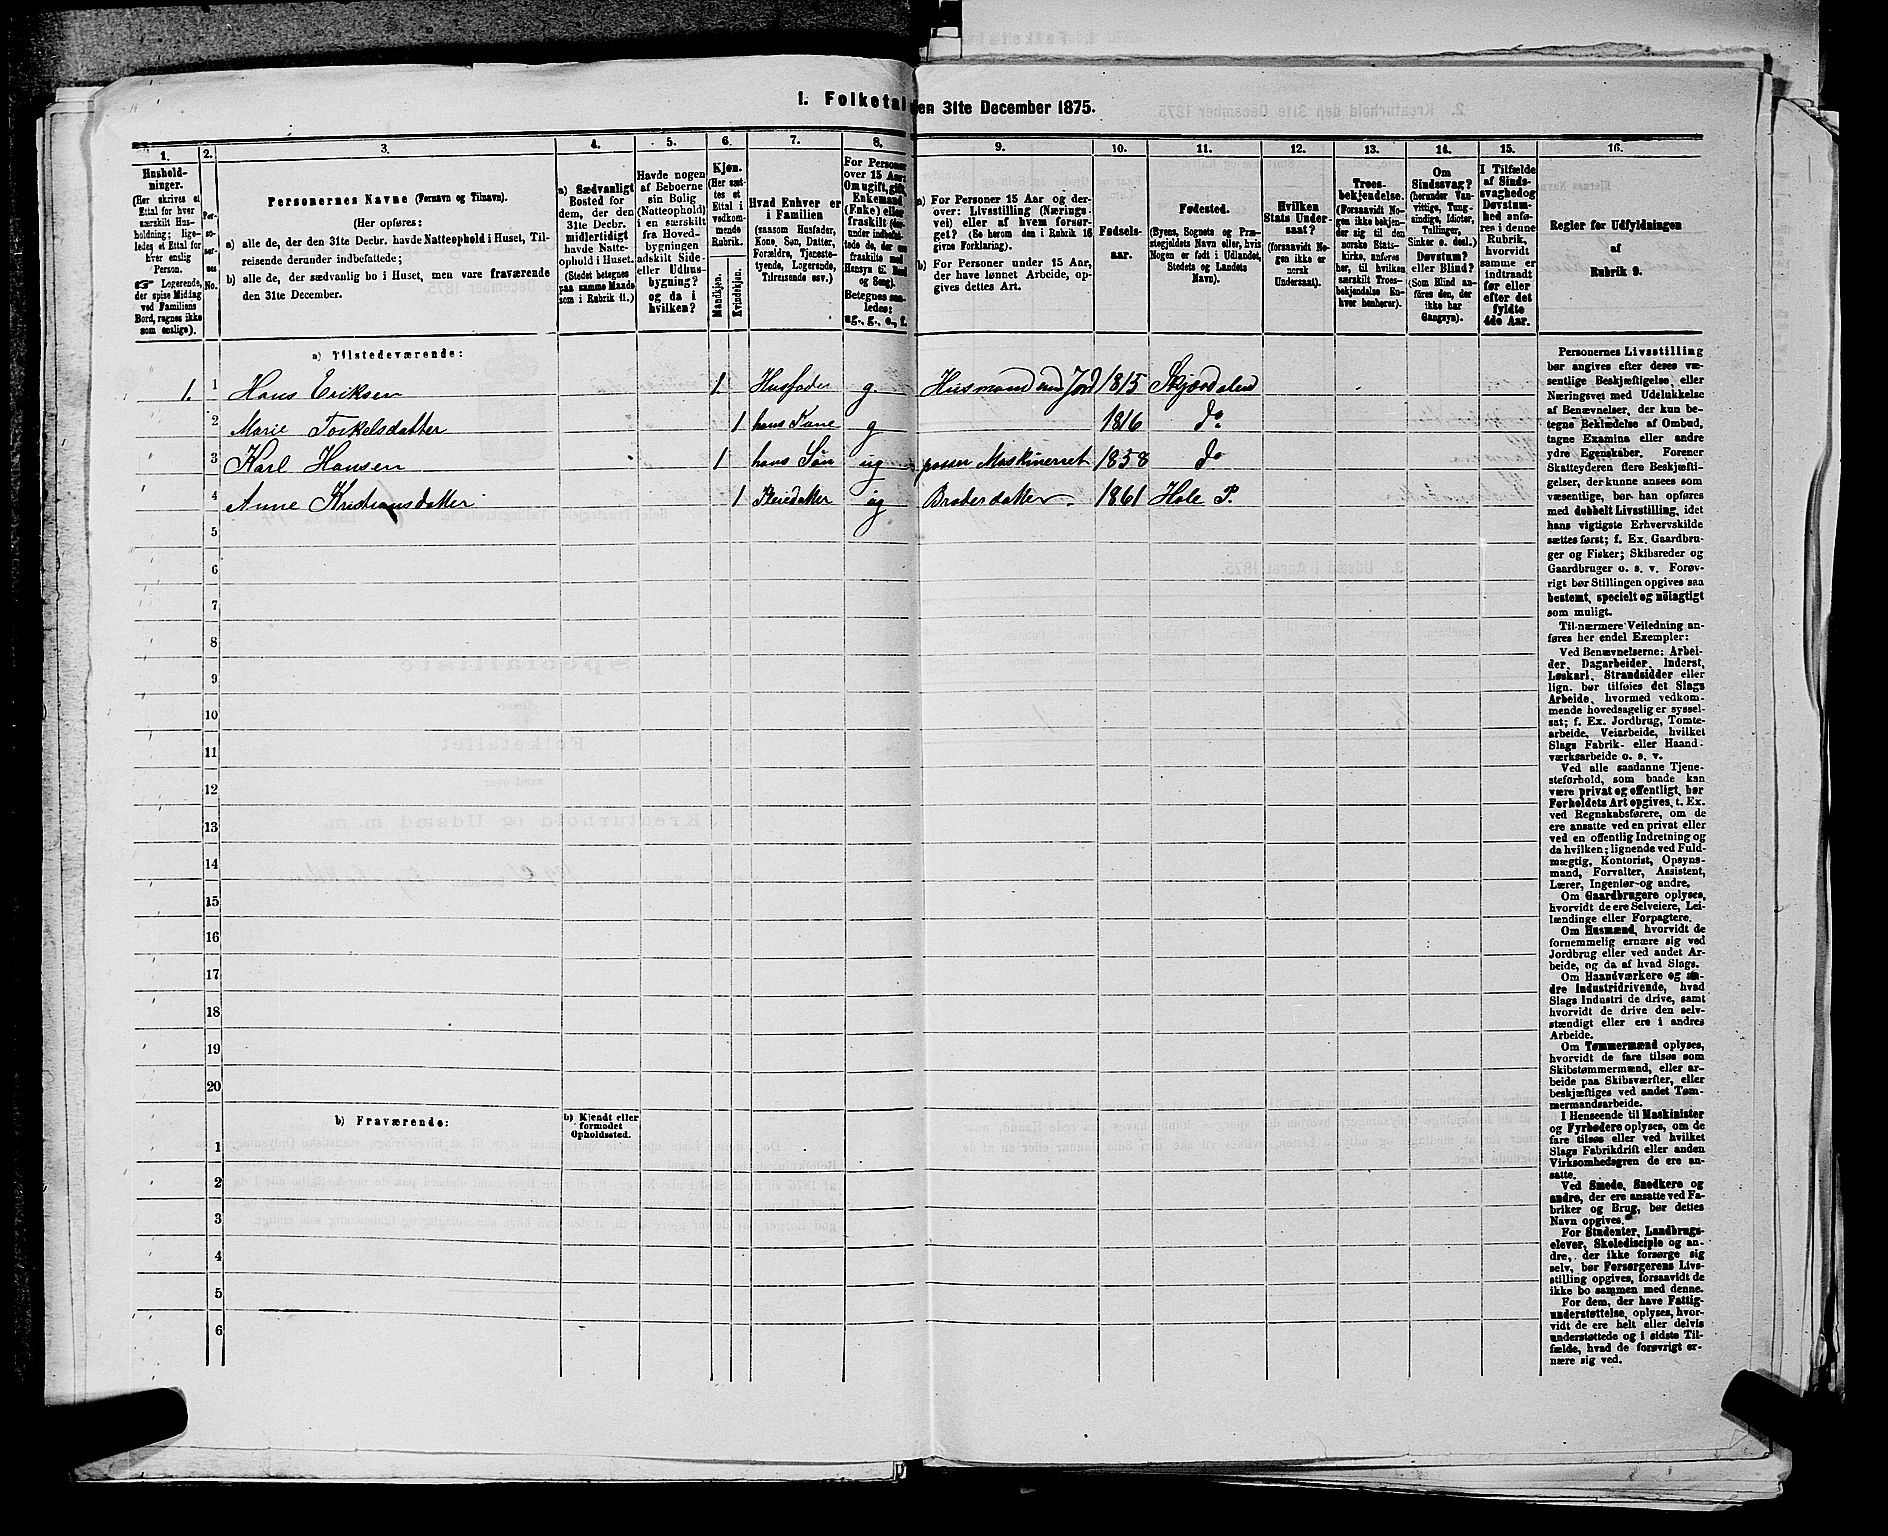 1. Folketal den 31te December 1875.
1.
Husholdninger.
(Her skrives et
Ettal for hver
særskilt Husholdning; ligeledes et Ettal for
hver enslig
Person.
☞ Logerende,
der spise Middag
ved Familiens
Bord, regnes ikke
som enslige).
2.
Personernes
No.
3.
Personernes Navne (Fornavn og Tilnavn).
(Her opføres:
a) alle de, der den 31te Decbr. havde Natteophold i Huset, Tilreisende derunder indbefattede;
b) alle de, der sædvanlig bo i Huset, men vare fraværende
den 31te December.
4.
a) Sædvanligt
Bosted for
dem, der den
31te Decbr.
midlertidigt
havde Natteophold i Huset.
(Stedet betegnes
paa samme Maade
som i Rubrik 11.)
5.
Havde nogen
af Beboerne
sin Bolig
(Natteophold)
i en særskilt
fra Hovedbygningen
adskilt Side-
eller Udhusbygning?
og da i
hvilken?
6.
Kjøn.
(Her sættes et
Ettal i
vedkommende
Rubrik.
Mandkjøn.
Kvindekjøn.
7.
Hvad Enhver er
i Familien
(saasom Husfader,
Kone, Søn, Datter,
Forældre, Tjenestetyende, Logerende,
Tilreisende osv.)
8.
For Personer
over 15 Aar:
Om ugift, gift,
Enkemand
(Enke) eller
fraskilt
Betegnes saaledes:
ug., g., e., f.
9.
a) For Personer 15 Aar og derover: Livsstilling (Næringsvei) eller af hvem forsørget? (Se herom den i Rubrik 16
givne Forklaring).
b) For Personer under 15 Aar,
der have lønnet Arbeide, opgives dettes Art.
10.
Fødselsaar.
11.
Fødested.
(Byens, Sognets og Præstegjeldets Navn eller, hvis
Nogen er født i Udlandet,
Stedets og Landets
Navn).
12.
Hvilken
Stats Undersaat?
(forsaavidt Nogen ikke er
norsk
Undersaat).
13.
Troesbekjendelse.
(Forsaavidt Nogen ikke bekjender sig til den
norske Statskirke, anføres
her, til hvilken
særskilt Troesbekjendelse Enhver henhører).
14.
Om
Sindssvag?
(herunder Vanvittige, Tungsindige, Idioter,
Tullinger,
Sinker o. desl.)
Døvstum?
eller Blind?
(Som Blind anføres den, der
ikke har
Gangsyn).
15.
I Tilfælde
af Sindssvaghed og
Døvstumhed anføres i denne
Rubrik,
hvorvidt
samme er
indtraadt
før eller
efter det
fyldte
4de Aar.
16.
Regler for Udfyldningen
af
Rubrik 9.
a) Tilstedeværende:
1. 1 Hans Eriksen 1 Husfader g Husmand Jord 1815 Skjærdalen
2 Marie Torkelsdatter 1 hans Kone g 1816 do
3 Karl Hansen 1 hans Søn ug passer Maskineriet 1858 do
4 Anne Kristiansdatter 1 Pleiedatter ug Broderdatter. 1861 Hole P.
5
6
7
8
9
10
11
12
13
14
15
16
17
18
19
20
b) Fraværende:
b) Kjendt eller
formodet
Opholdssted.
1
2
3
4
5
6
Personernes Livsstilling
bør angives efter deres væsentlige Beskjæftigelse eller
Næringsvei med Udelukkelse
af Benævnelser, der kun betegne Beklædelse af Ombud,
tagne Examina eller andre
ydre Egenskaber. Forener
Skatteyderen flere Beskjæftigelser, der kunne ansees som
væsentlige, bør han opføres
med dobbelt Livsstilling, idet
hans vigtigste Erhvervskilde
sættes først; f. Ex. Gaardbruger og Fisker; Skibsreder og
Gaardbruger o. s. v. Forøvrigt bør Stillingen opgives saa
bestemt, specielt og nöiagtigt
som muligt.
Til nærmere Veiledning anføres her endel Exempler:
Ved Benævnelserne: Arbeider, Dagarbeider, Inderst,
Løskarl, Strandsidder eller
lign. bør tilføies det Slags
Arbeide, hvormed vedkommende hovedsagelig er sysselsat; f. Ex. Jordbrug, Tomtearbeide, Veiarbeide, hvilket
Slags Fabrik- eller Haandværksarbeide o. s. v.
Ved alle saadanne Tjenesteforhold, som baade kan
være privat og offentligt, bør
Forholdets Art opgives, t. Ex.
ved Regnskabsførere, om de
ere ansatte ved en privat eller
ved en offentlig Indretning og
da hvilken; lignende ved Fuldmægtig, Kontorist, Opsynsmand, Forvalter, Assistent,
Lærer, Ingeniør og andre.
Om Gaardbrugere oplyses,
hvorvidt de ere Selveiere, Leilændinge eller Forpagtere.
Om Husmænd, hvorvidt de
fornemmelig ernære sig ved
Jordbrug eller ved andet Arbeide, og da af hvad Slags.
Om Haandværkere og andre Industridrivende, hvad
Slags Industri de drive, samt
hvorvidt de drive den selvstændigt eller ere i andres
Arbeide.
Om Tømmermænd oplyses,
hvorvidt de fare tilsøs som
Skibstømmermænd, eller arbeide paa Skibsværfter, eller
beskjæftiges ved andet Tømmermandsarbeide.
I Henseende til Maskinister
og Fyrbødere oplyses, om de
fare tilsøs eller ved hvilket
Slags Fabrikdrift eller anden
Virksomhedsgren de ere ansatte.
Ved Smede, Snedkere og
andre, der ere ansatte ved Fabriker og Brug, bør dettes
Navn opgives.
For Studenter, Landbrugselever, Skoledisciple og andre, der ikke forsørge sig
selv, bør Forsørgerens Livsstilling opgives, forsaavidt de
ikke bo sammen med denne.
For dem, der have Fattigunderstøttelse, oplyses, hvorvidt de ere helt eller delvis
understøttede og i sidste Tilfælde, hvad de forøvrigt ernære sig ved.